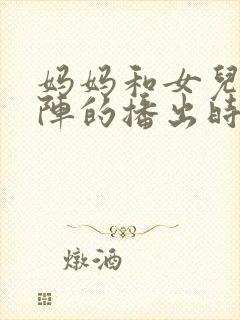 妈妈和女兒
陣的播出時
燉酒